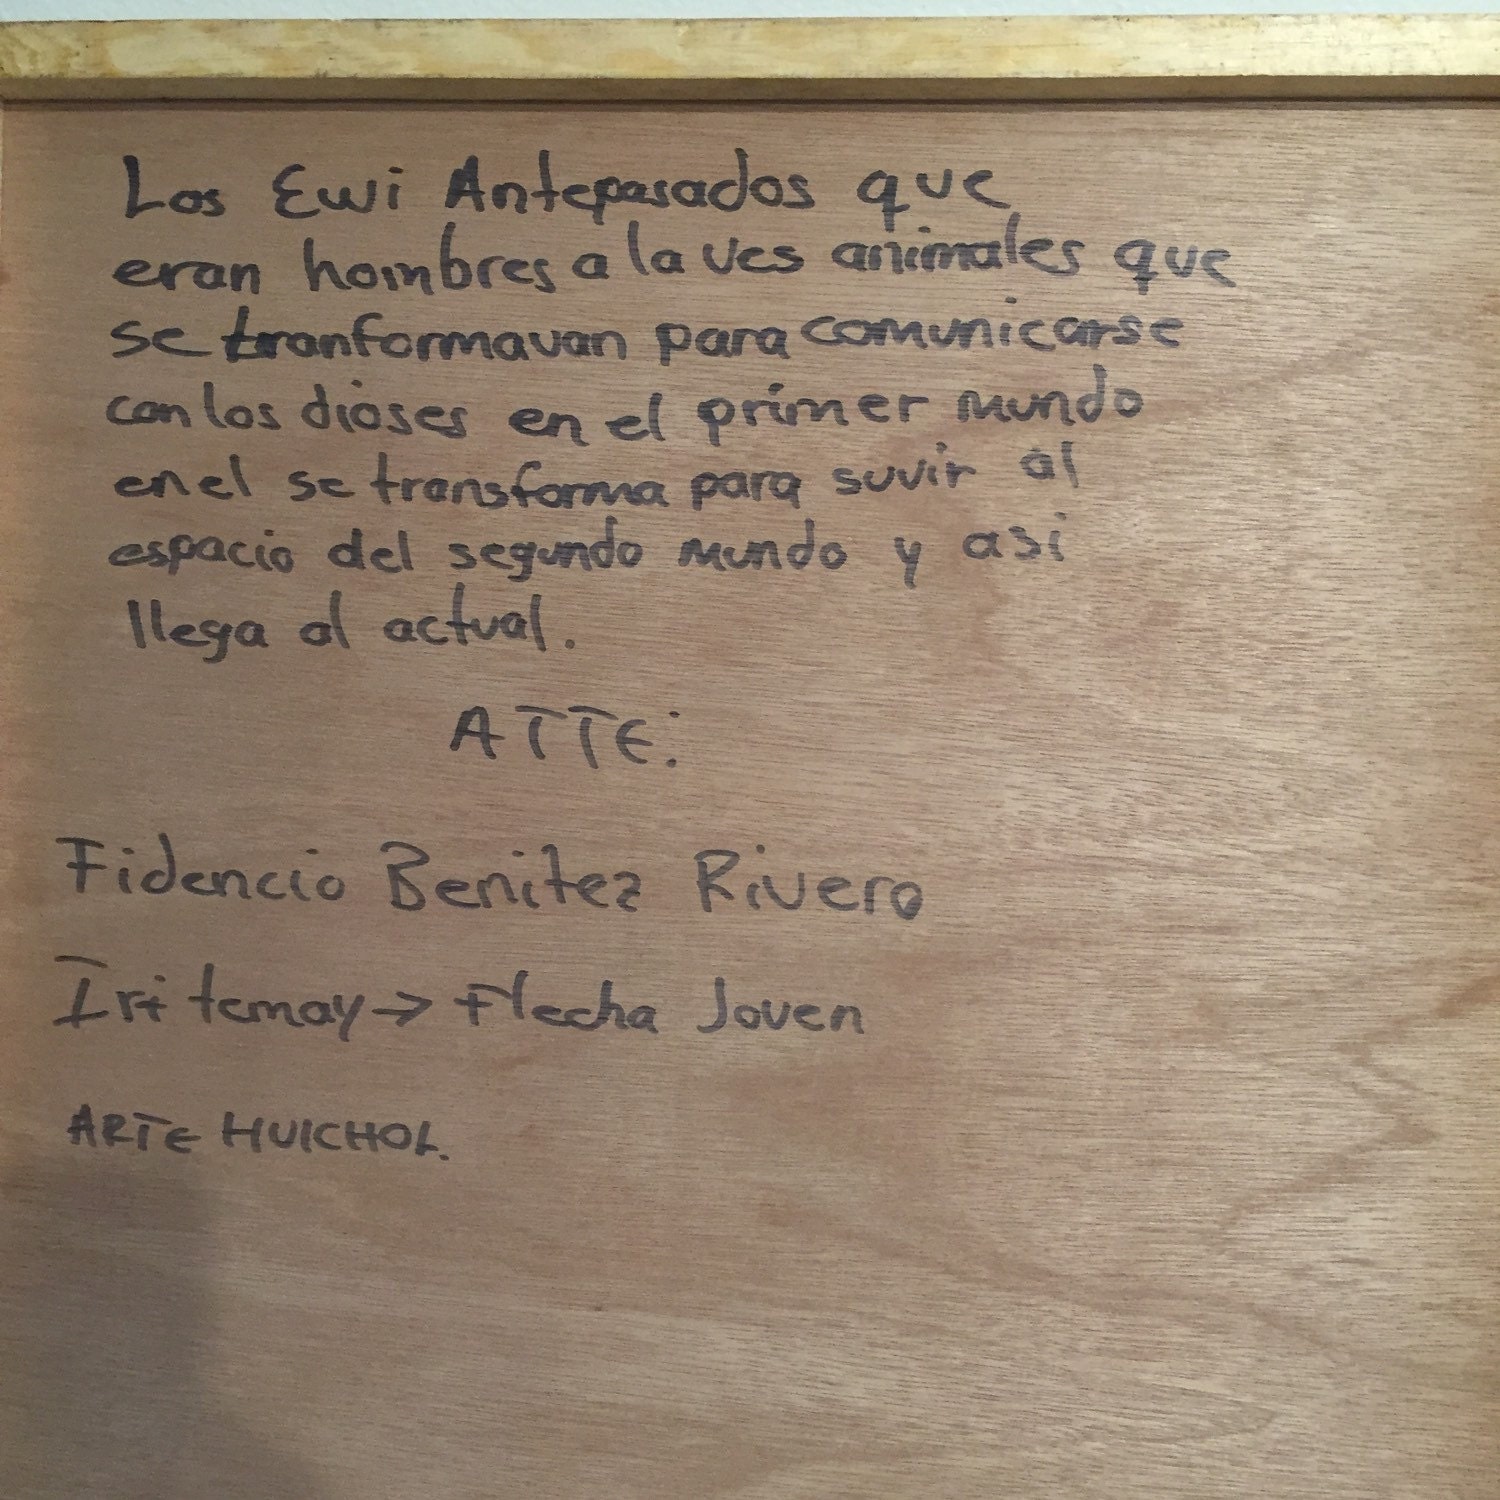 Los Ewi Antepasados que
eran hombres a la ves animales que
se tranformavan para comunicarse
con los dioses en el primer mundo
en el se transforma para suvir al
espacio del segundo mundo y asi
llega al actual.
ATTE:
Fidencio Benitez Rivero
Iritemay → Flecha Joven
ARTE HUICHOL.